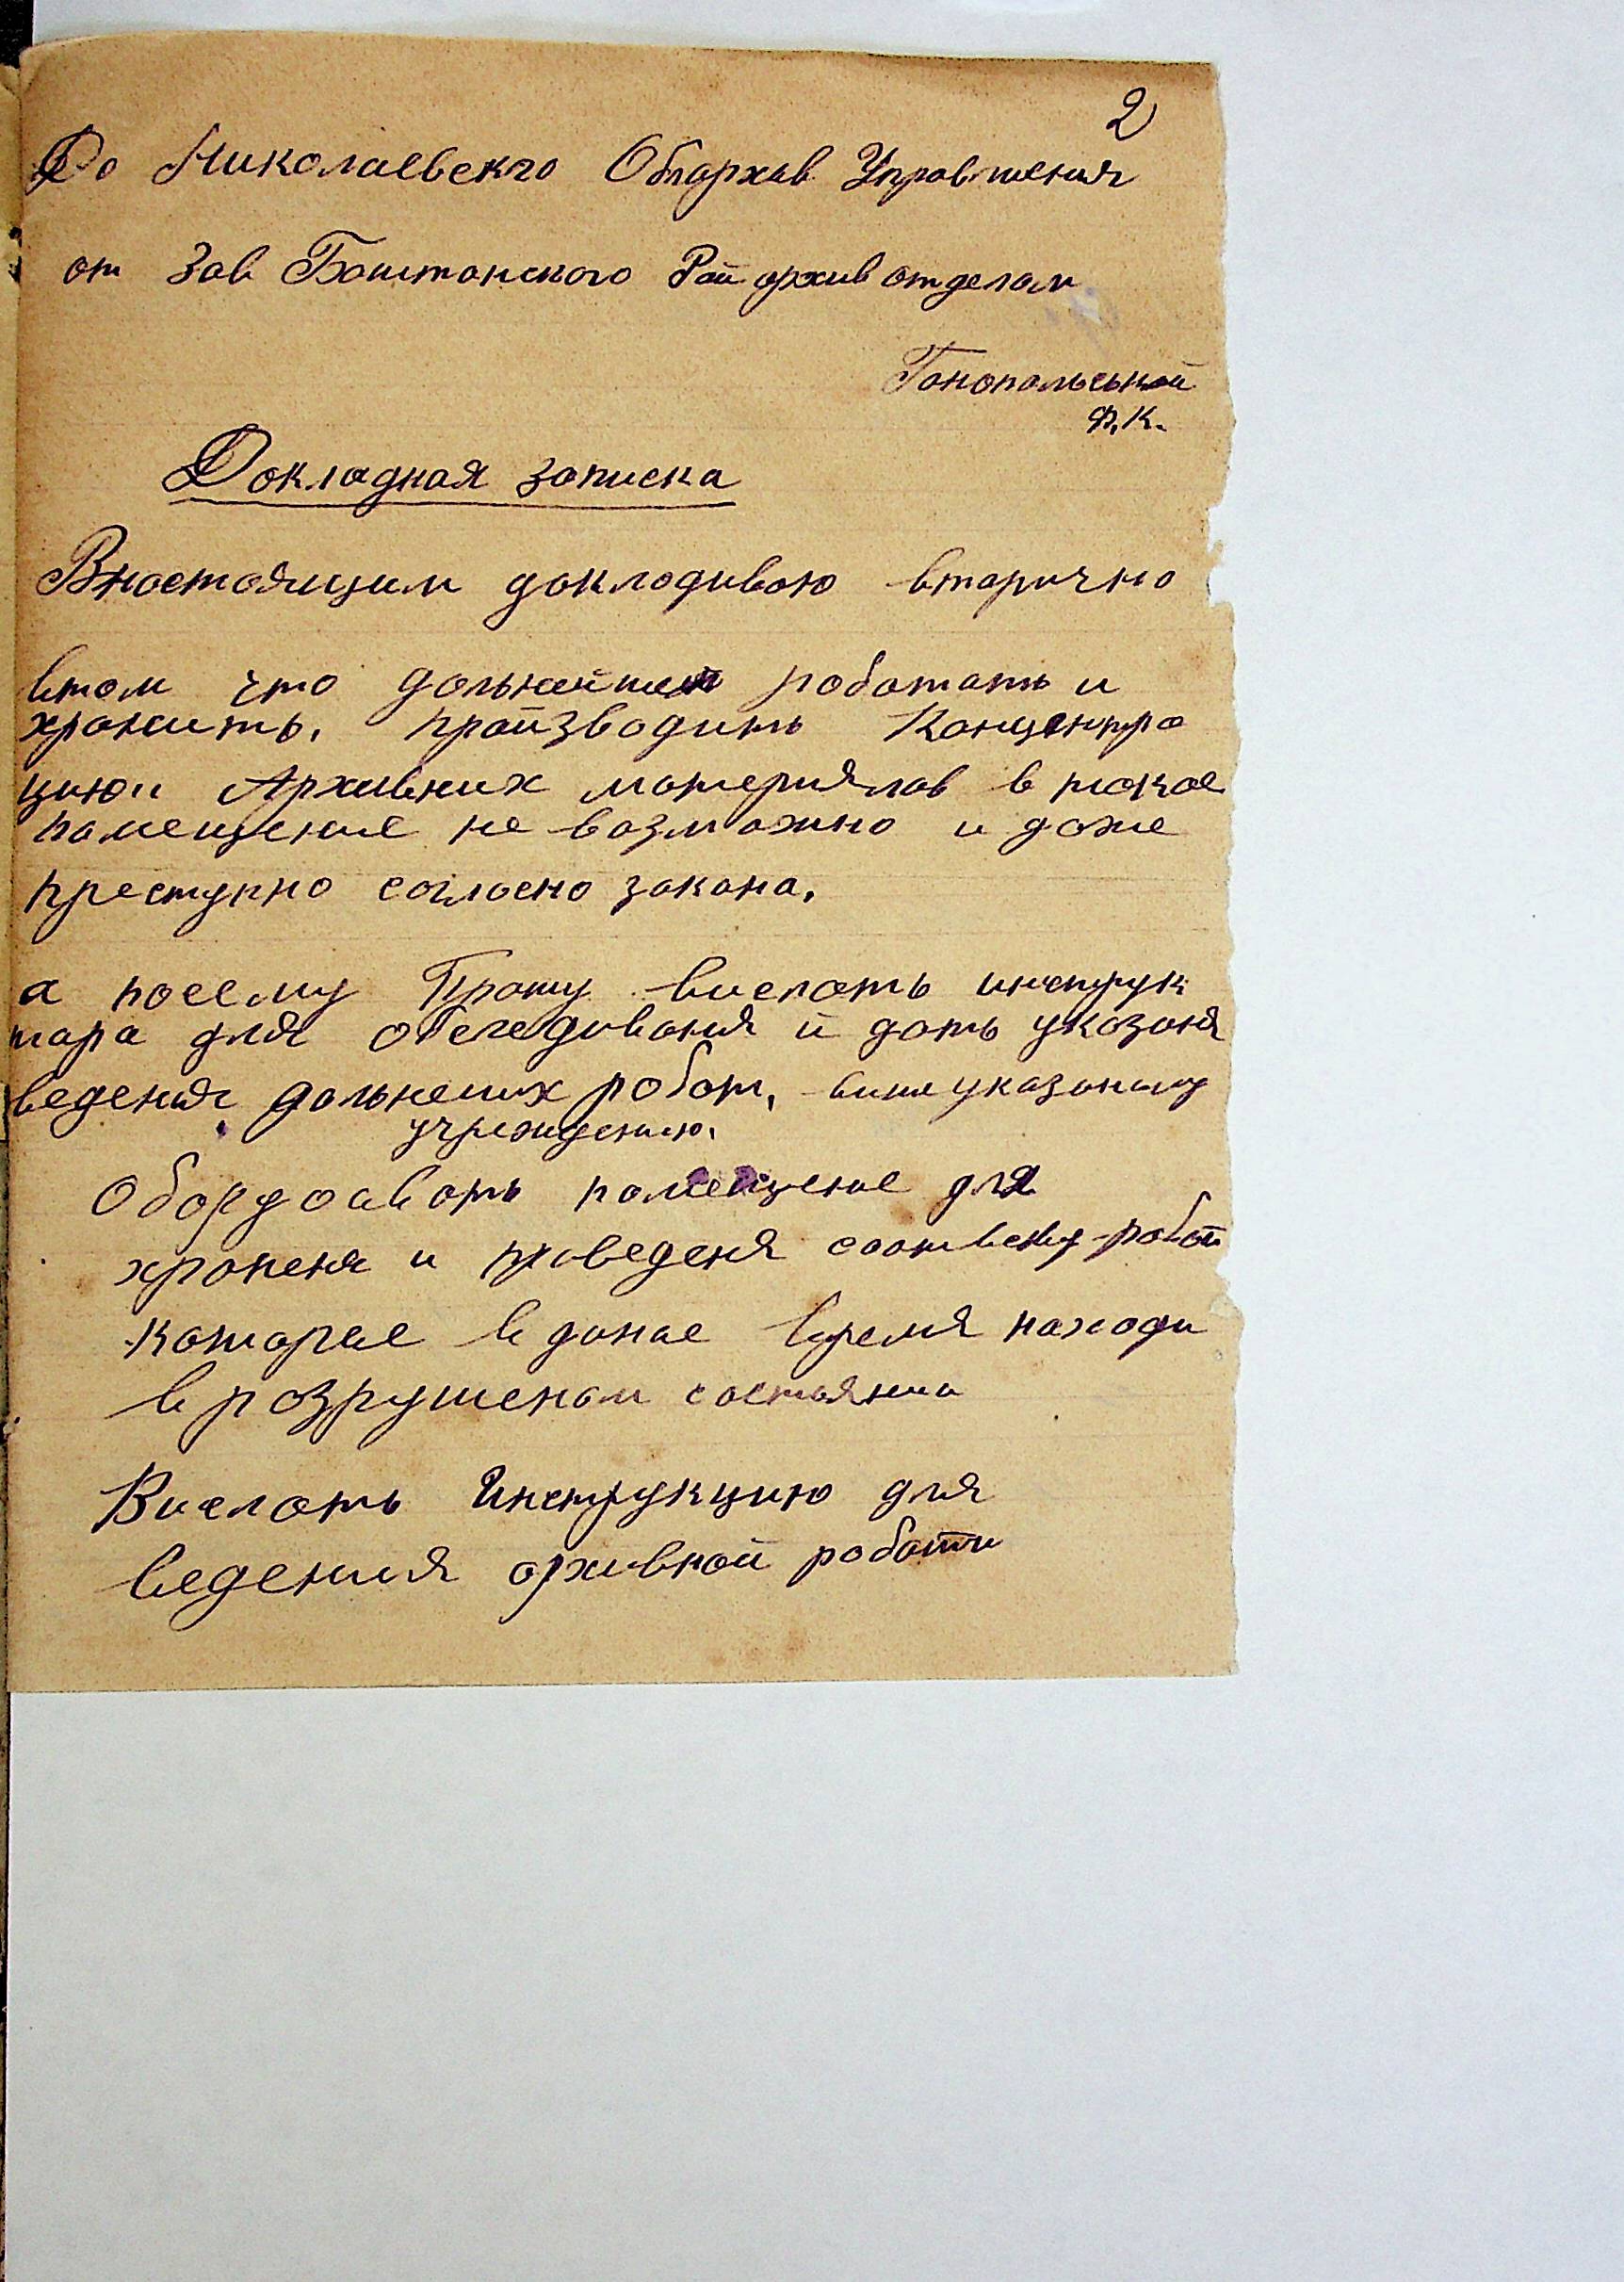 2
До Николаевскго Облархив Управления
от Зав Баштанского Рай архив отделам
Ганапальськой
Ф.К.
Докладная записка
Внастоящим докладиваю вторично
втом что дальнейшем работать и
хранить, произзводить Концентра
цию Архивних материялов в такое
помещение не возможно и даже
преступно согласно закона,
а посему Прошу вислать инструк
тора для обследиваня и дать указаня
ведения дальнеших работ, више указаному
учреждению,
Обордоавать помещение для
храненя и проведеня соотвенту работ
которые в даное время находи
в розрушеном состаянии
Вислать Инструкцию для
ведения архивной работи